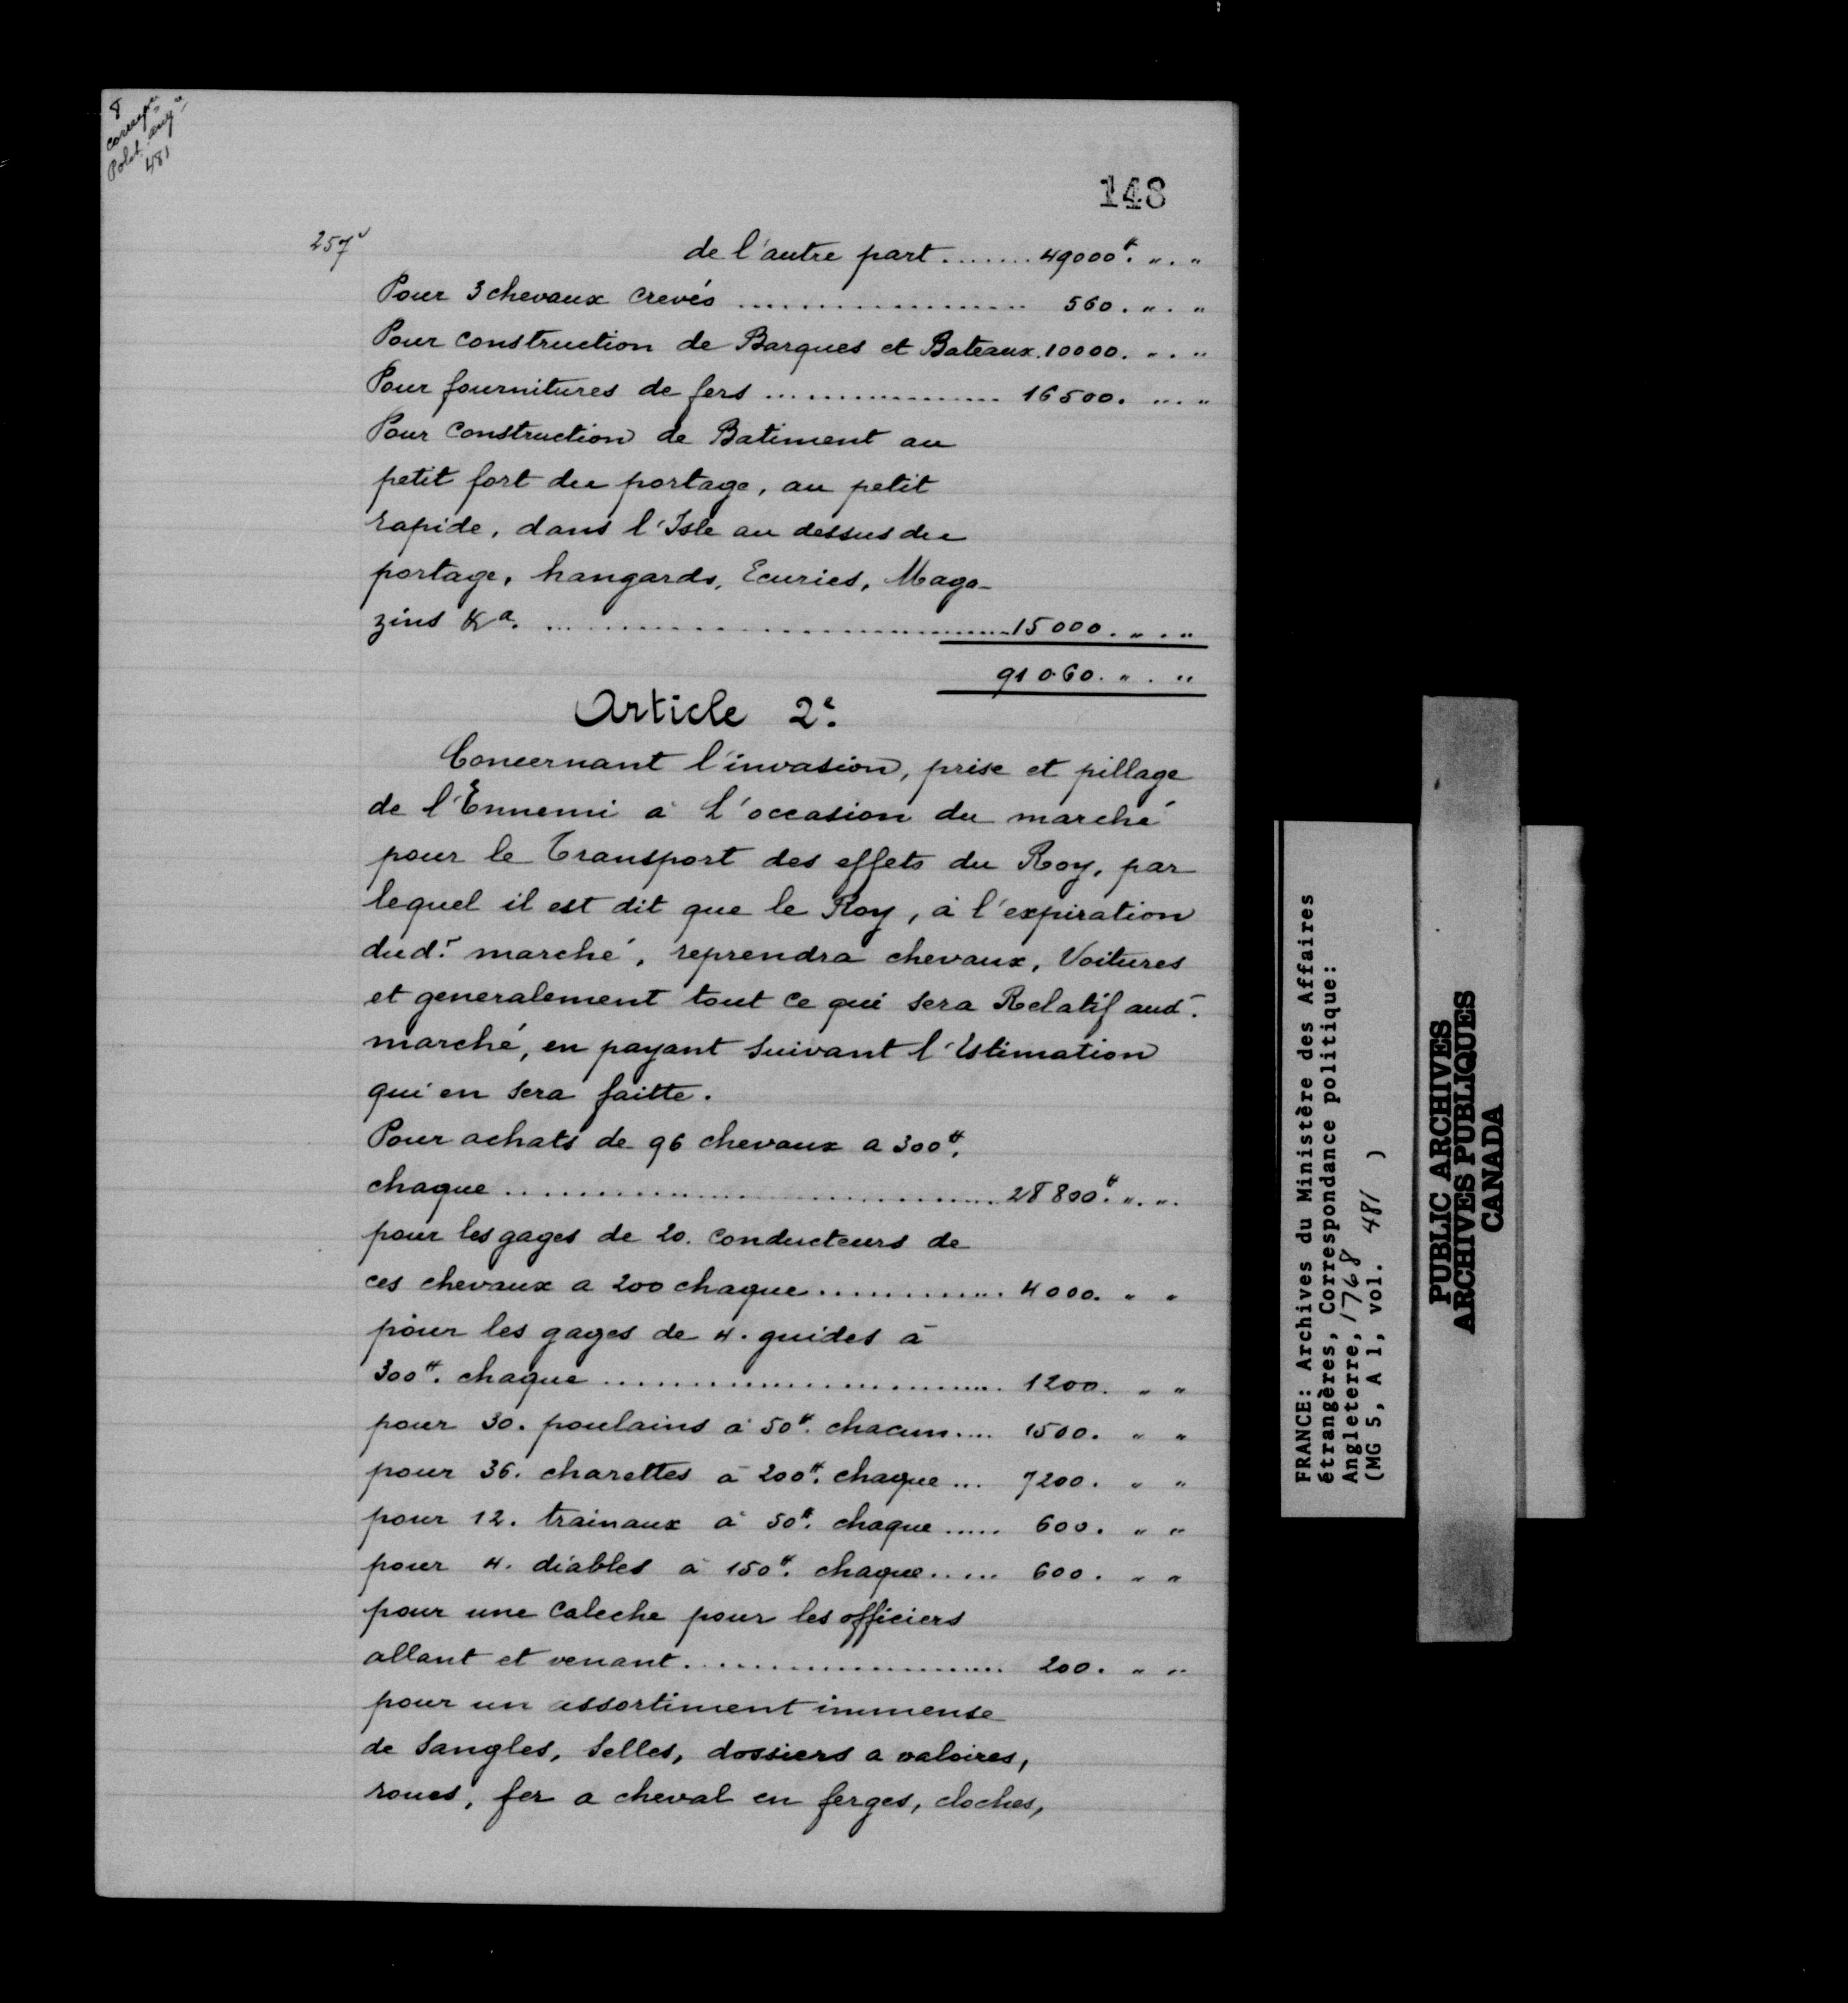 8
corresp.
Polit. ang.
481
148
257v
de l'autre part ....... 49000#. ". "
Pour 3 chevaux crevés .................... 560. ". "
Pour construction de Barques et Bateaux. 10000. ". "
Pour fournitures de fers .................. 16500. ". "
Pour construction de Batiment au
petit fort du portage, au petit
rapide, dans l'Isle au dessus du
portage, hangards, Ecuries, Maga-
zins &a. ................................... 15000. ". "
91060. ". "
Article 2e.
Concernant l'invasion, prise et pillage
de l'Ennemi à l'occasion du marché
pour le Transport des effets du Roy, par
lequel il est dit que le Roy, à l'expiration
dudt. marché, reprendra chevaux, Voitures
et generalement tout ce qui sera Relatif aud.
marché, en payant suivant l'Estimation
qui en sera faitte.
Pour achats de 96 chevaux a 300#.
chaque ................................... 28800#. ". ".
pour les gages de 20. conducteurs de
ces chevaux a 200 chaque .............. 4000. " "
pour les gages de 4. guides à
300#. chaque ............................ 1200. " "
pour 30. poulains à 50#. chacun .... 1500. " "
pour 36. charettes à 200#. chaque ... 7200. " "
pour 12. trainaux à 50#. chaque ..... 600. " "
pour 4. diables à 150#. chaque ..... 600. " "
pour une caleche pour les officiers
allant et venant ...................... 200. " "
pour un assortiment immense
de Sangles, Selles, dossiers a valoires,
roues, fer a cheval en ferges, cloches,
FRANCE: Archives du Ministère des Affaires
étrangères, Correspondance politique:
Angleterre, 1768
(MG 5, A 1, vol. 481 )
PUBLIC ARCHIVES
ARCHIVES PUBLIQUES
CANADA